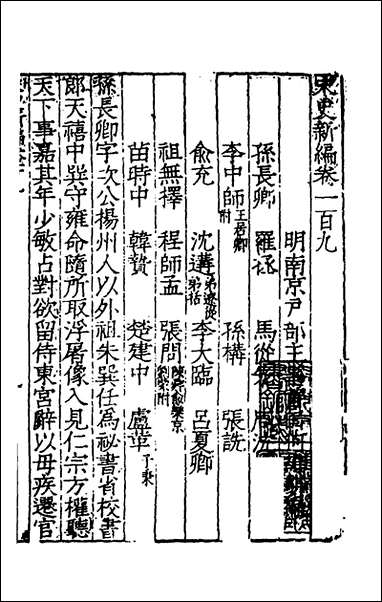 宋史新編卷一百九
明南京戶部主
孫長卿 羅拯 馬從
李中師 王居卿附 孫構 張詵
兪充 沈遘 弟遼從弟括 李大臨 呂夏卿
祖無擇 程師孟 張問 陳舜兪樂京劉蒙附
苗時中 韓贄 楚建中 盧革 子秉
孫長卿字次公揚州人以外祖朱巽任為祕書省校書
郎天禧中巽守雍命隨所取浮屠像入見仁宗方權聽
天下事嘉其年少敏占對欲留侍東宮辭以母疾遷官